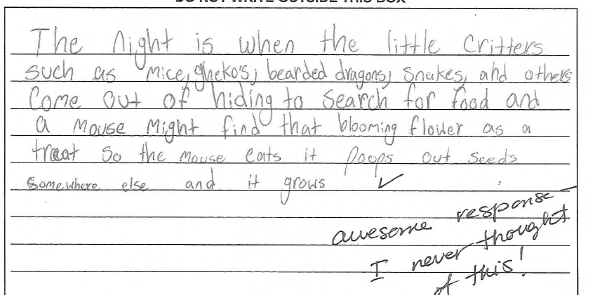 DO NOT WRITE OUTSIDE THIS BOX
The night is when the little critters
such as mice, gheko's, bearded dragons, snakes, and others
Come out of hiding to search for food and
a mouse might find that blooming flower as a
treat so the mouse eats it poops out seeds
somewhere else and it grows ✓
awesome response
I never thought
of this!